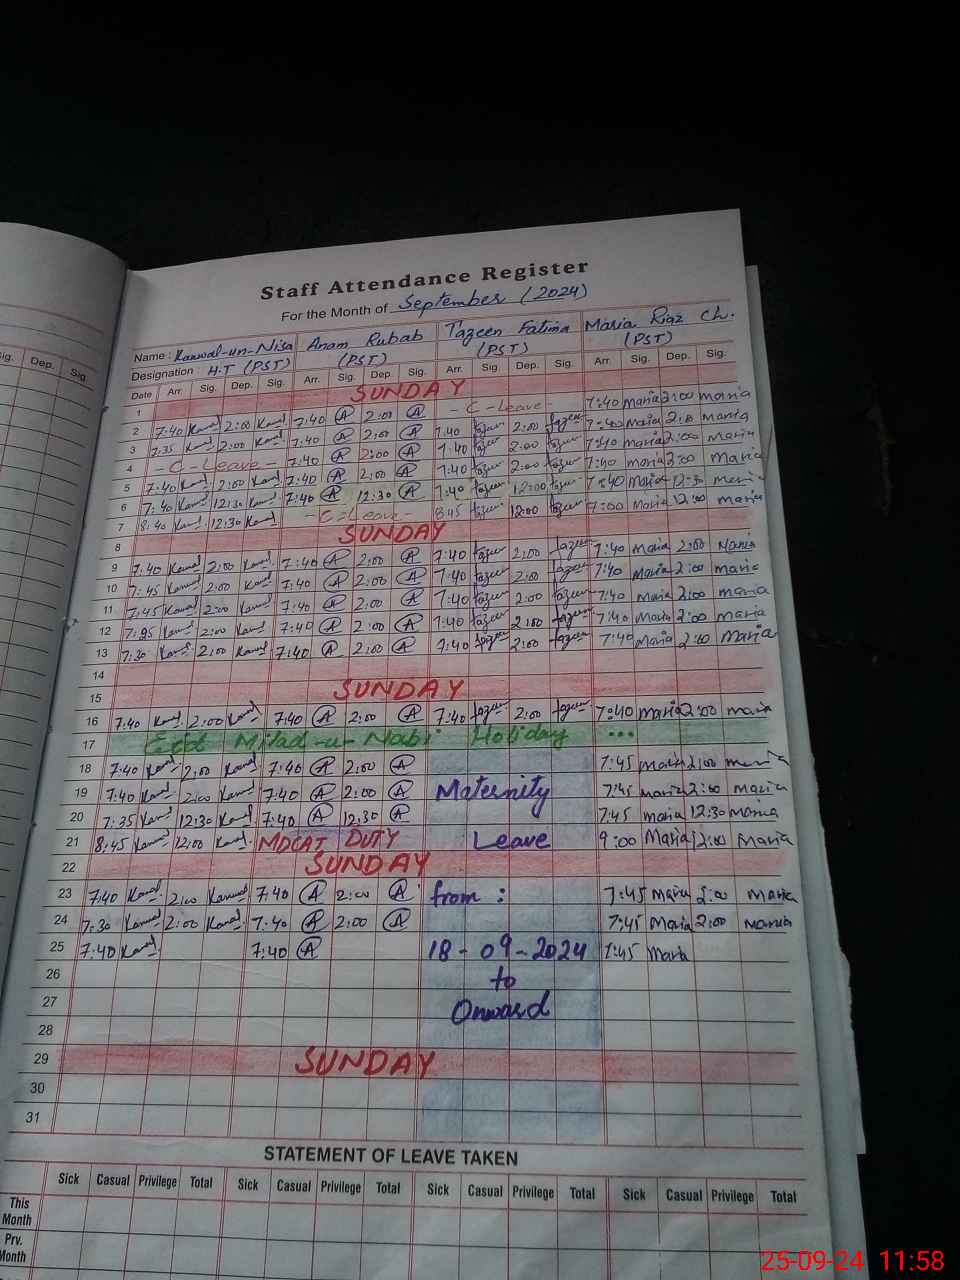 Staff Attendance Register
For the Month of September (2024)
Name : Kanwal-un-Nisa Anam Rubab Tazeen Fatima Maria Riaz Ch.
Designation : H.T (PST) (PST) (PST) (PST)
Date Arr. Sig. Dep. Sig. Arr. Sig. Dep. Sig. Arr. Sig. Dep. Sig. Arr. Sig. Dep. Sig.
1 SUNDAY
2 7:40 2:00 7:40 A 2:00 A - C - Leave - 7:40 Maria 2:00 maria
3 7:35 2:00 7:40 A 2:00 A 7:40 2:00 7:40 Maria 2:00 maria
4 - C - Leave - 7:40 A 2:00 A 7:40 2:00 7:40 Maria 2:00 Maria
5 7:40 2:00 7:40 A 2:00 A 7:40 2:00 7:40 Maria 2:00 Maria
6 7:40 12:30 7:40 A 12:30 A 7:40 12:00 7:40 Maria 12:30 maria
7 8:40 12:30 - C - Leave - 8:45 12:00 7:00 Maria 12:00 maria
8 SUNDAY
9 7:40 2:00 7:40 A 2:00 A 7:40 2:00 7:40 Maria 2:00 Maria
10 7:45 2:00 7:40 A 2:00 A 7:40 2:00 7:40 Maria 2:00 maria
11 7:45 2:00 7:40 A 2:00 A 7:40 2:00 7:40 Maria 2:00 maria
12 2:00 7:40 A 2:00 A 7:40 2:00 7:40 Maria 2:00 maria
13 7:30 2:00 7:40 A 2:00 A 7:40 2:00 7:40 Maria 2:00 Maria
14
15 SUNDAY
16 7:40 2:00 7:40 A 2:00 A 7:40 2:00 7:40 Maria 2:00 maria
17 Eid Milad-u-Nabi Holiday ...
18 7:40 2:00 7:40 A 2:00 A 7:45 Maria 2:00 maria
19 7:40 2:00 7:40 A 2:00 A Maternity 7:45 maria 2:00 maria
20 7:35 12:30 7:40 A 12:30 A 7:45 maria 12:30 maria
21 8:45 12:00 MDCAT DUTY Leave 9:00 Maria 12:00 Maria
22 SUNDAY
23 7:40 2:00 7:40 A 2:00 A from : 7:45 Maria 2:00 maria
24 7:30 2:00 7:40 A 2:00 A 7:45 Maria 2:00 maria
25 7:40 7:40 A 18-09-2024 7:45 Maria
26 to
27 Onward
28
29 SUNDAY
30
31
STATEMENT OF LEAVE TAKEN
Sick Casual Privilege Total Sick Casual Privilege Total Sick Casual Privilege Total Sick Casual Privilege Total
This Month
Prv. Month
Sig. Dep. Sig.
25-09-24 11:58